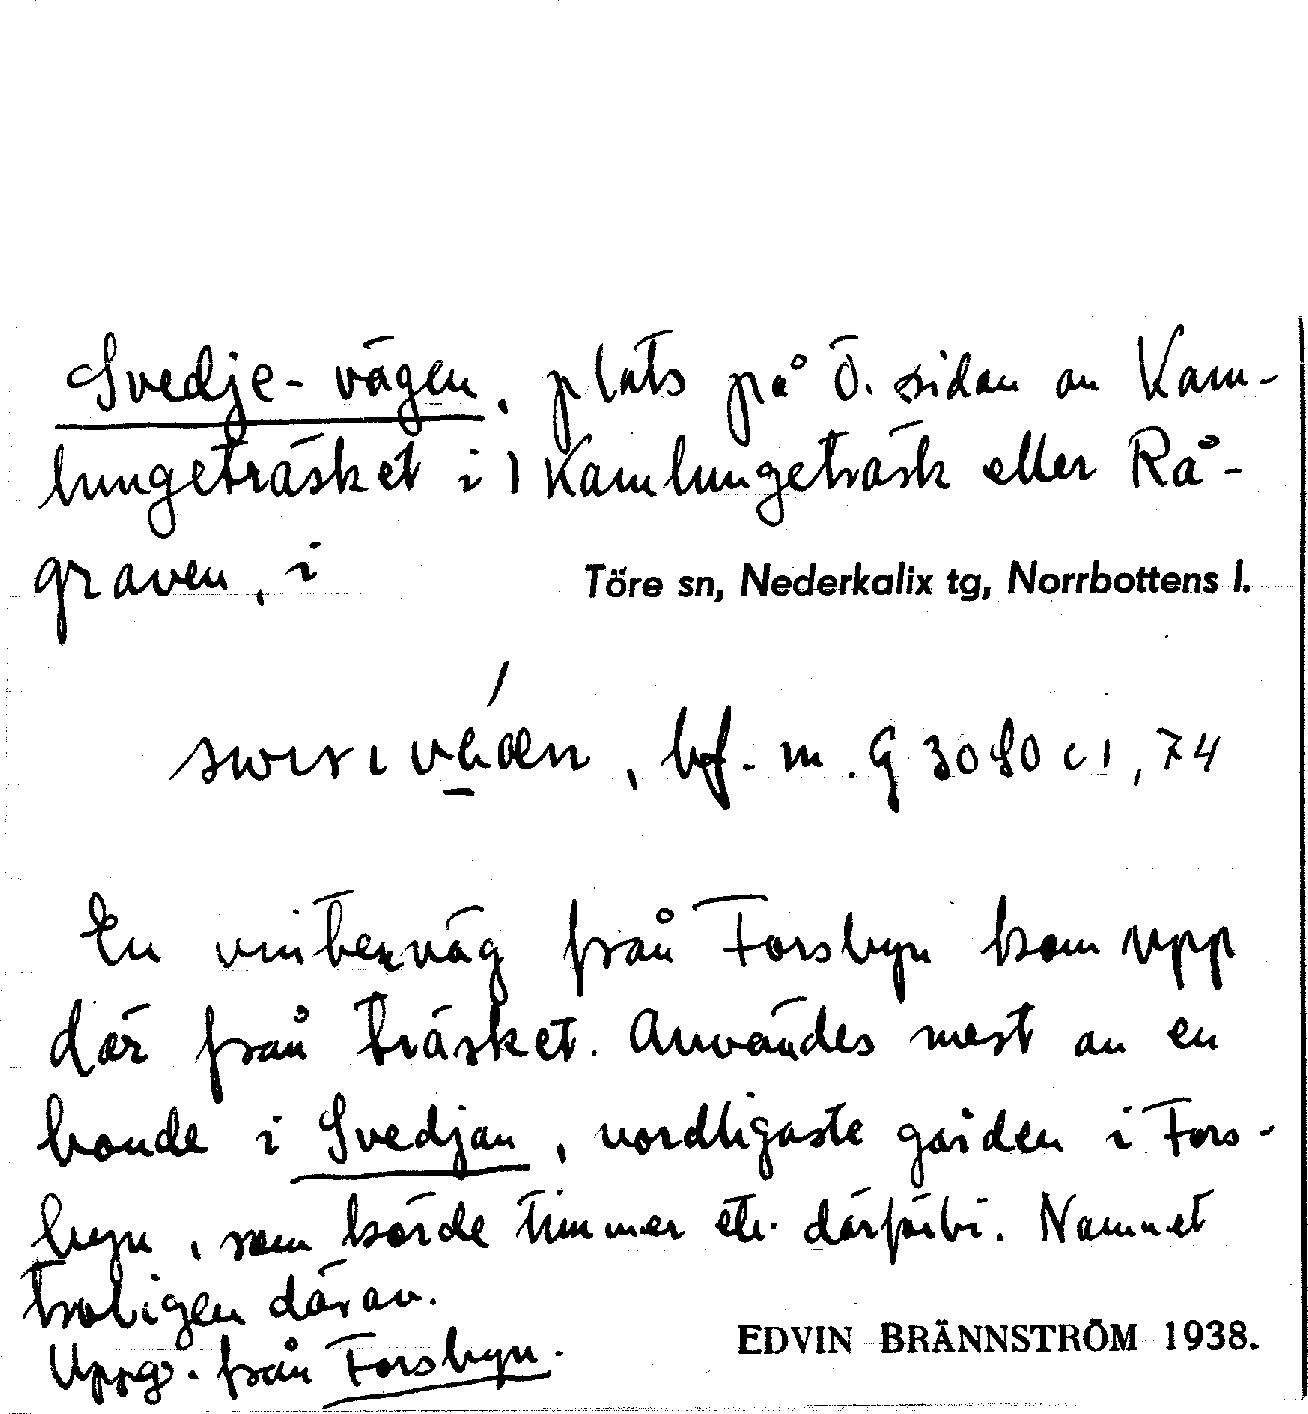 Svedje-vägen, plats på ö. sidan av Kam-
lungeträsket i 1 Kamlungeträsk eller Rå-
graven, i Töre sn, Nederkalix tg, Norrbottens l.
, bf. m. G 3080 c 1, 74
En vinterväg från Forsbyn kom upp
där från träsket. Användes mest av en
bonde i Svedjan, nordligaste gården i Fors-
byn, som körde timmer etc. därförbi. Namnet
troligen därav.
Uppg. från Forsbyn.
EDVIN BRÄNNSTRÖM 1938.